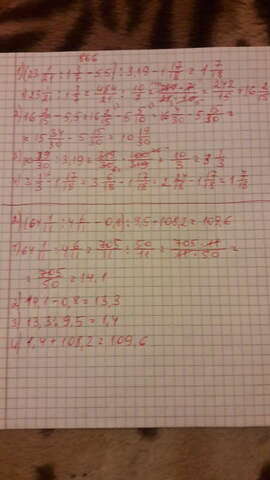 566
1) (23 1/21 : 1 3/7 - 5,5) : 3,19 - 1 17/18 = 1 7/18
1) 23 1/21 : 1 3/7 = 484/21 : 10/7 = 484·7/21·10 = 242/15 = 16 2/15
2) 16 2/15 - 5,5 = 16 2/15 - 5 5/10 = 16 4/30 - 5 15/30 =
= 15 34/30 - 5 15/30 = 10 19/30
3) 10 19/30 : 3,19 = 319/30 · 100/319 = 10/3 = 3 1/3
4) 3 1/3 - 1 17/18 = 3 6/18 - 1 17/18 = 2 24/18 - 1 17/18 = 1 7/18
2) (64 1/11 : 4 6/11 - 0,8) : 9,5 + 108,2 = 109,6
1) 64 1/11 : 4 6/11 = 705/11 : 50/11 = 705·11/11·50 =
= 705/50 = 14,1
2) 14,1 - 0,8 = 13,3
3) 13,3 : 9,5 = 1,4
4) 1,4 + 108,2 = 109,6